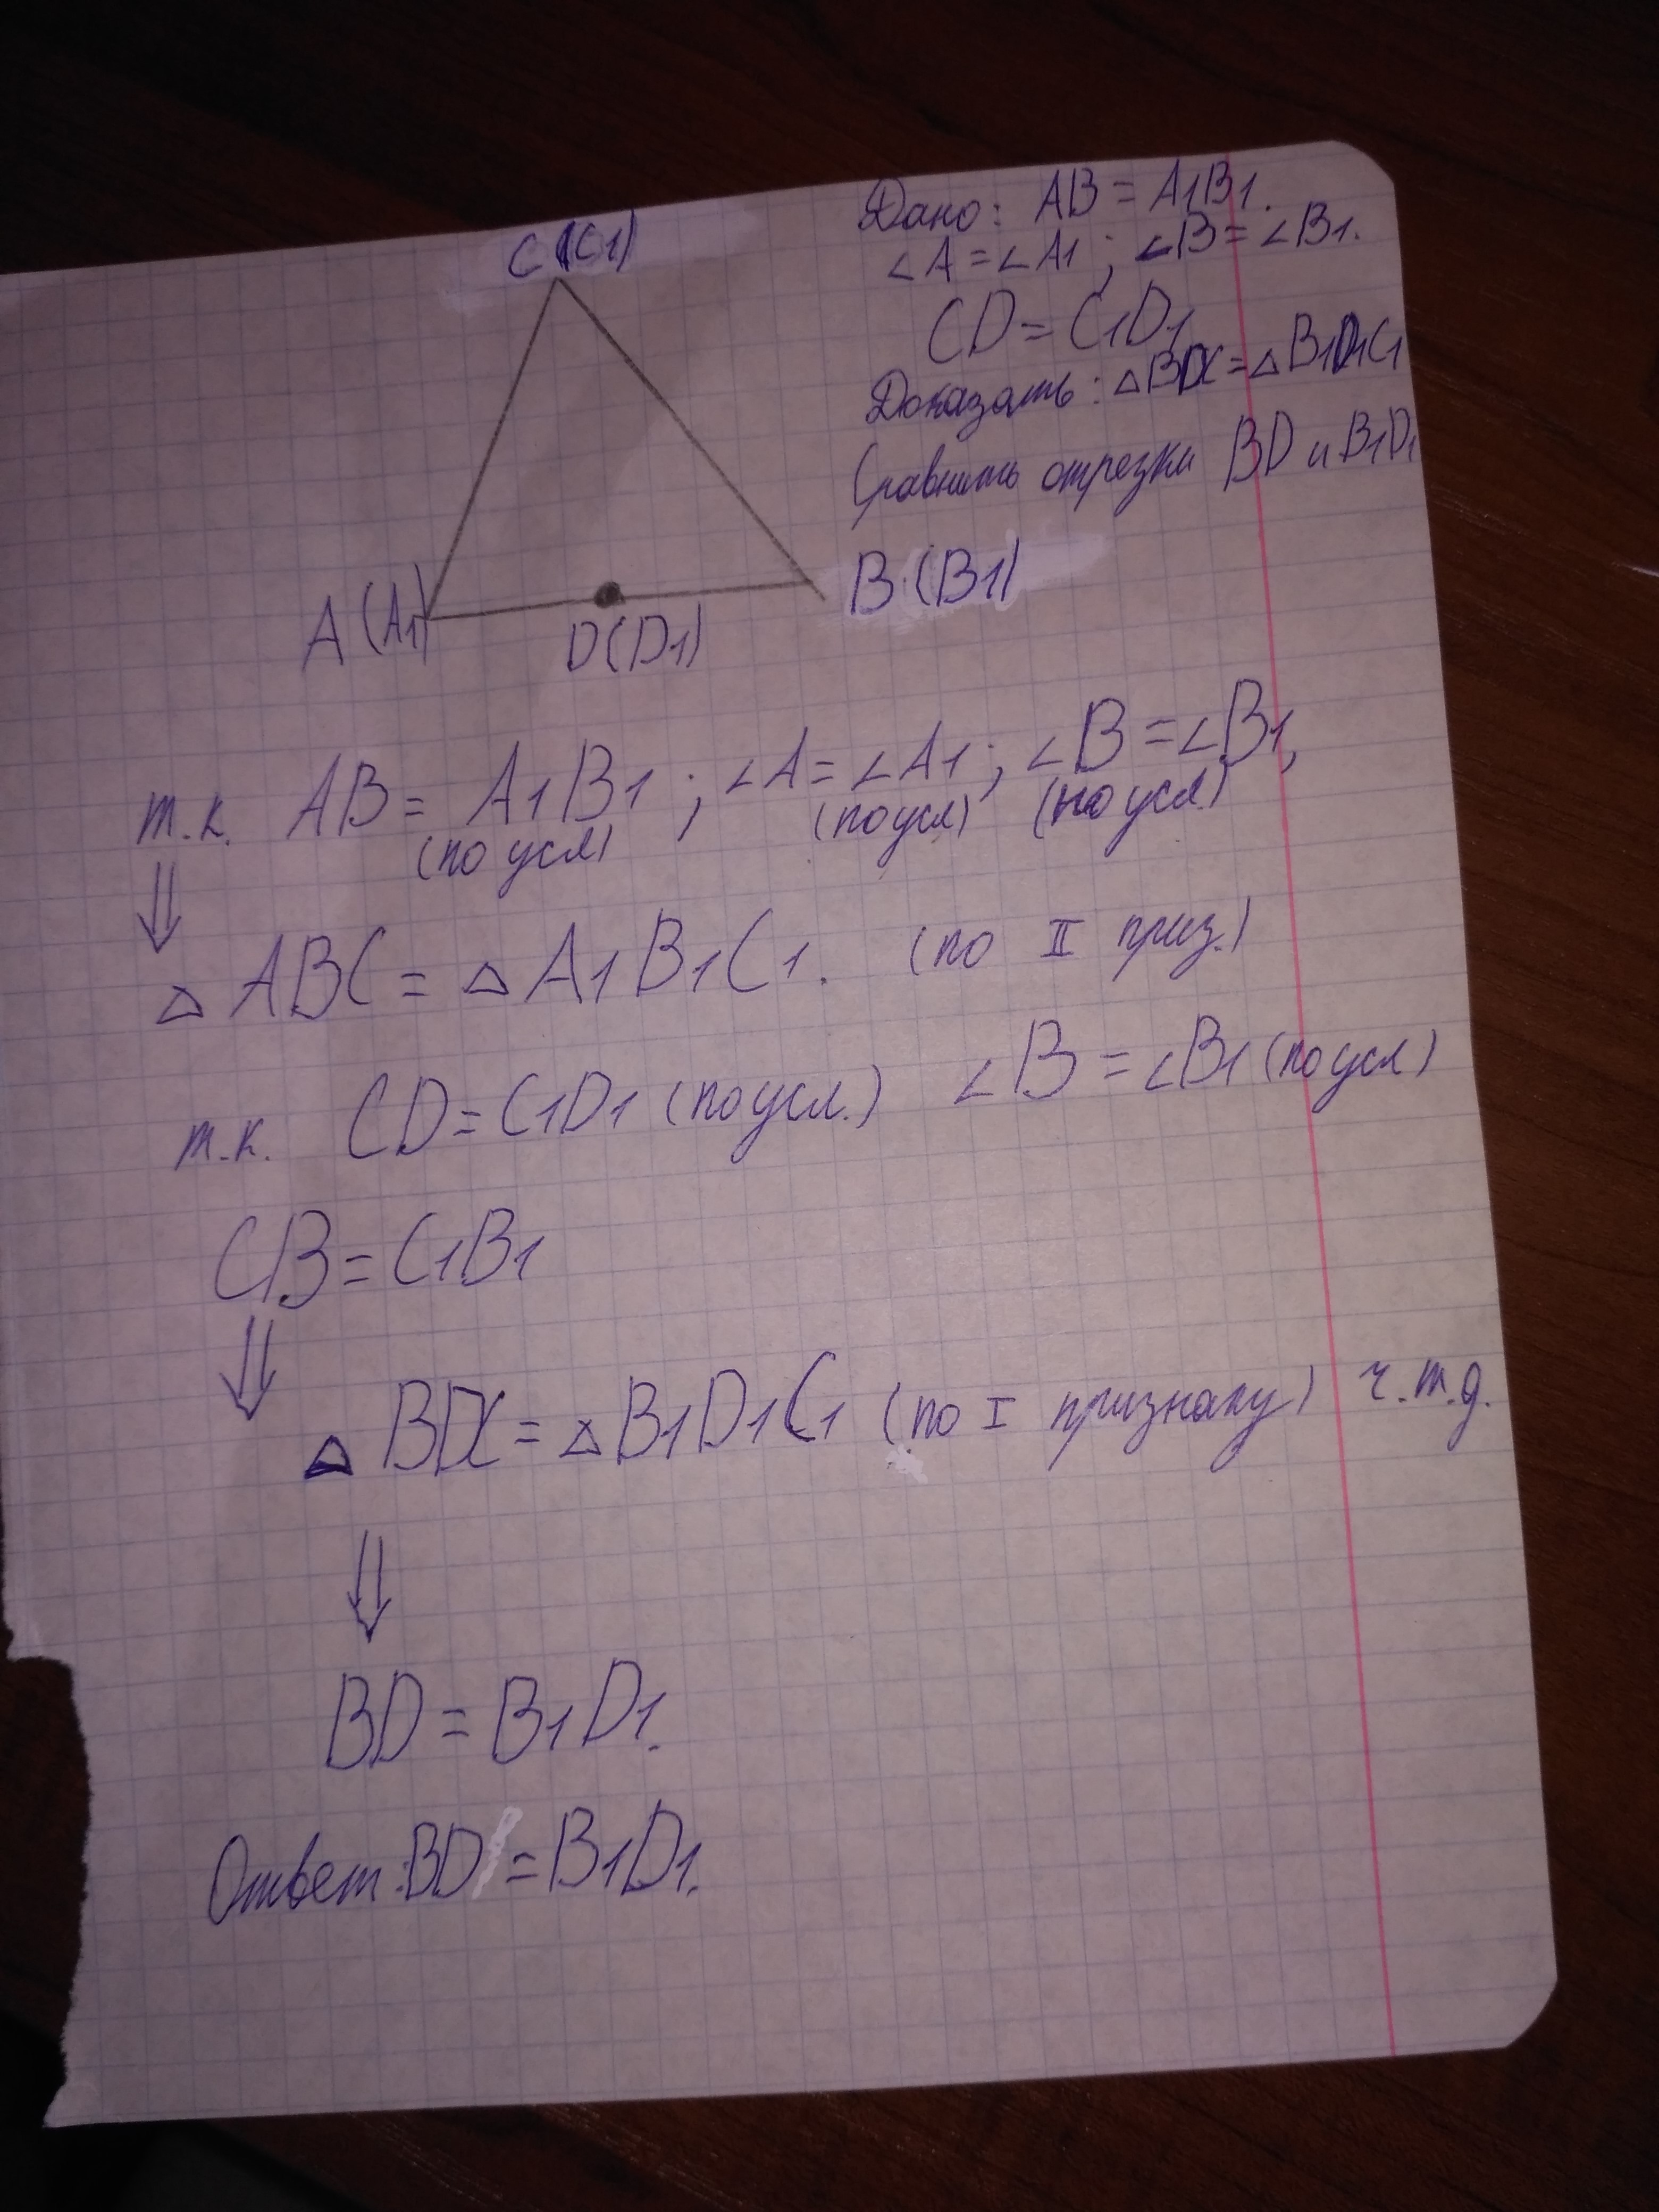 Дано: AB = A1B1.
∠A = ∠A1 ; ∠B = ∠B1.
CD = C1D1
Доказать: △BDC = △B1D1C1
Сравнить отрезки BD и B1D1
C (C1)
A (A1)
D (D1)
B (B1)
т.к. AB = A1B1 ; ∠A = ∠A1 ; ∠B = ∠B1,
(по усл) (по усл) (по усл)
⇓
△ABC = △A1B1C1. (по II приз.)
т.к. CD = C1D1 (по усл.) ∠B = ∠B1 (по усл)
CB = C1B1
⇓
△BDC = △B1D1C1 (по I признаку) ч.т.д.
⇓
BD = B1D1.
Ответ: BD = B1D1.